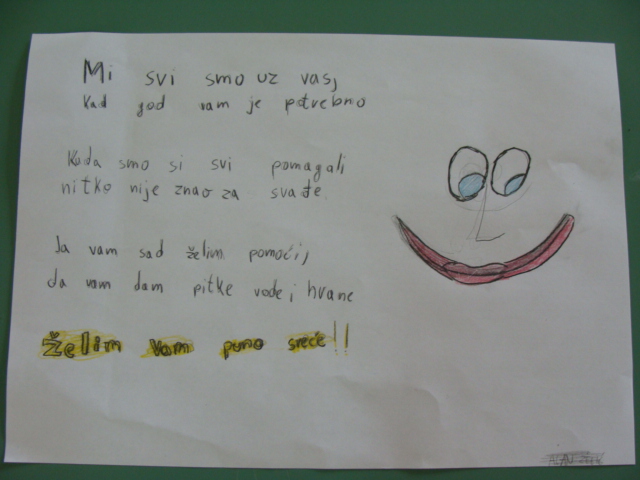 Mi svi smo uz vas,
Kad god vam je potrebno
Kada smo si svi pomagali
nitko nije znao za svađe.
Ja vam sad želim pomoći,
da vam dam pitke vode i hrane
Želim vam puno sreće!!